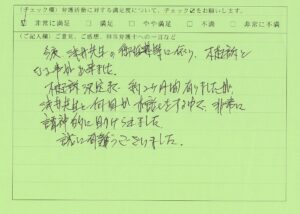 (チェック欄) 弁護活動に対する満足度について、チェック☑をお願いします。
☑ 非常に満足 □ 満足 □ やや満足 □ 不満 □ 非常に不満
(ご記入欄) ご意見、ご感想、担当弁護士への一言など
今回、浅井先生の御指導等に依り、不起訴と
なる事が出来ました。
不起訴決定まで、約2ヶ月間有りましたが、
浅井先生と何回かお話しをする中で、非常に
精神的に助けられました。
誠に有難うございました。